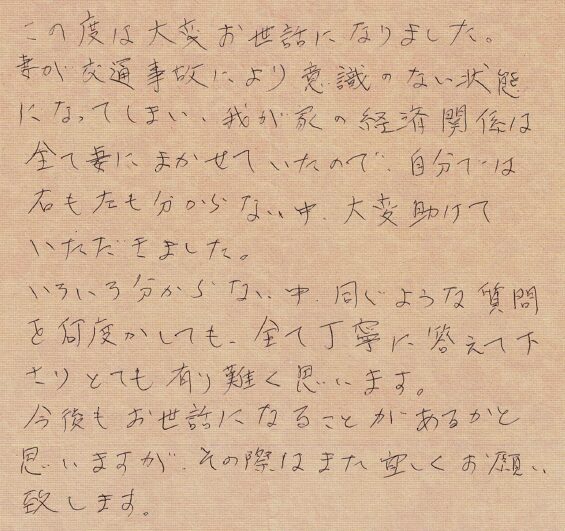 この度は大変お世話になりました。
妻が交通事故により意識のない状態
になってしまい、我が家の経済関係は
全て妻にまかせていたので、自分では
右も左も分からない中、大変助けて
いただきました。
いろいろ分からない中、同じような質問
を何度かしても、全て丁寧に答えて下
さりとても有り難く思います。
今後もお世話になることがあるかと
思いますが、その際はまた宜しくお願い
致します。